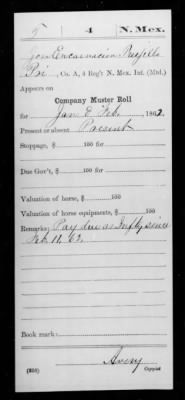 4 N. Mex.
Encarnacion Trujillo
Pvt., Co. A, 4 Reg't N. Mex. Inf. (Mtd.)
Appears on
Company Muster Roll
for Jan & Feb., 1862
Present or absent Present
Stoppage, $ 100 for
Due Gov't, $ 100 for
Valuation of horse, $ 100
Valuation of horse equipments, $ 100
Remarks: Pay due as Infty since
Feb 11, 62.
Book mark:
Avery
(858) Copyist